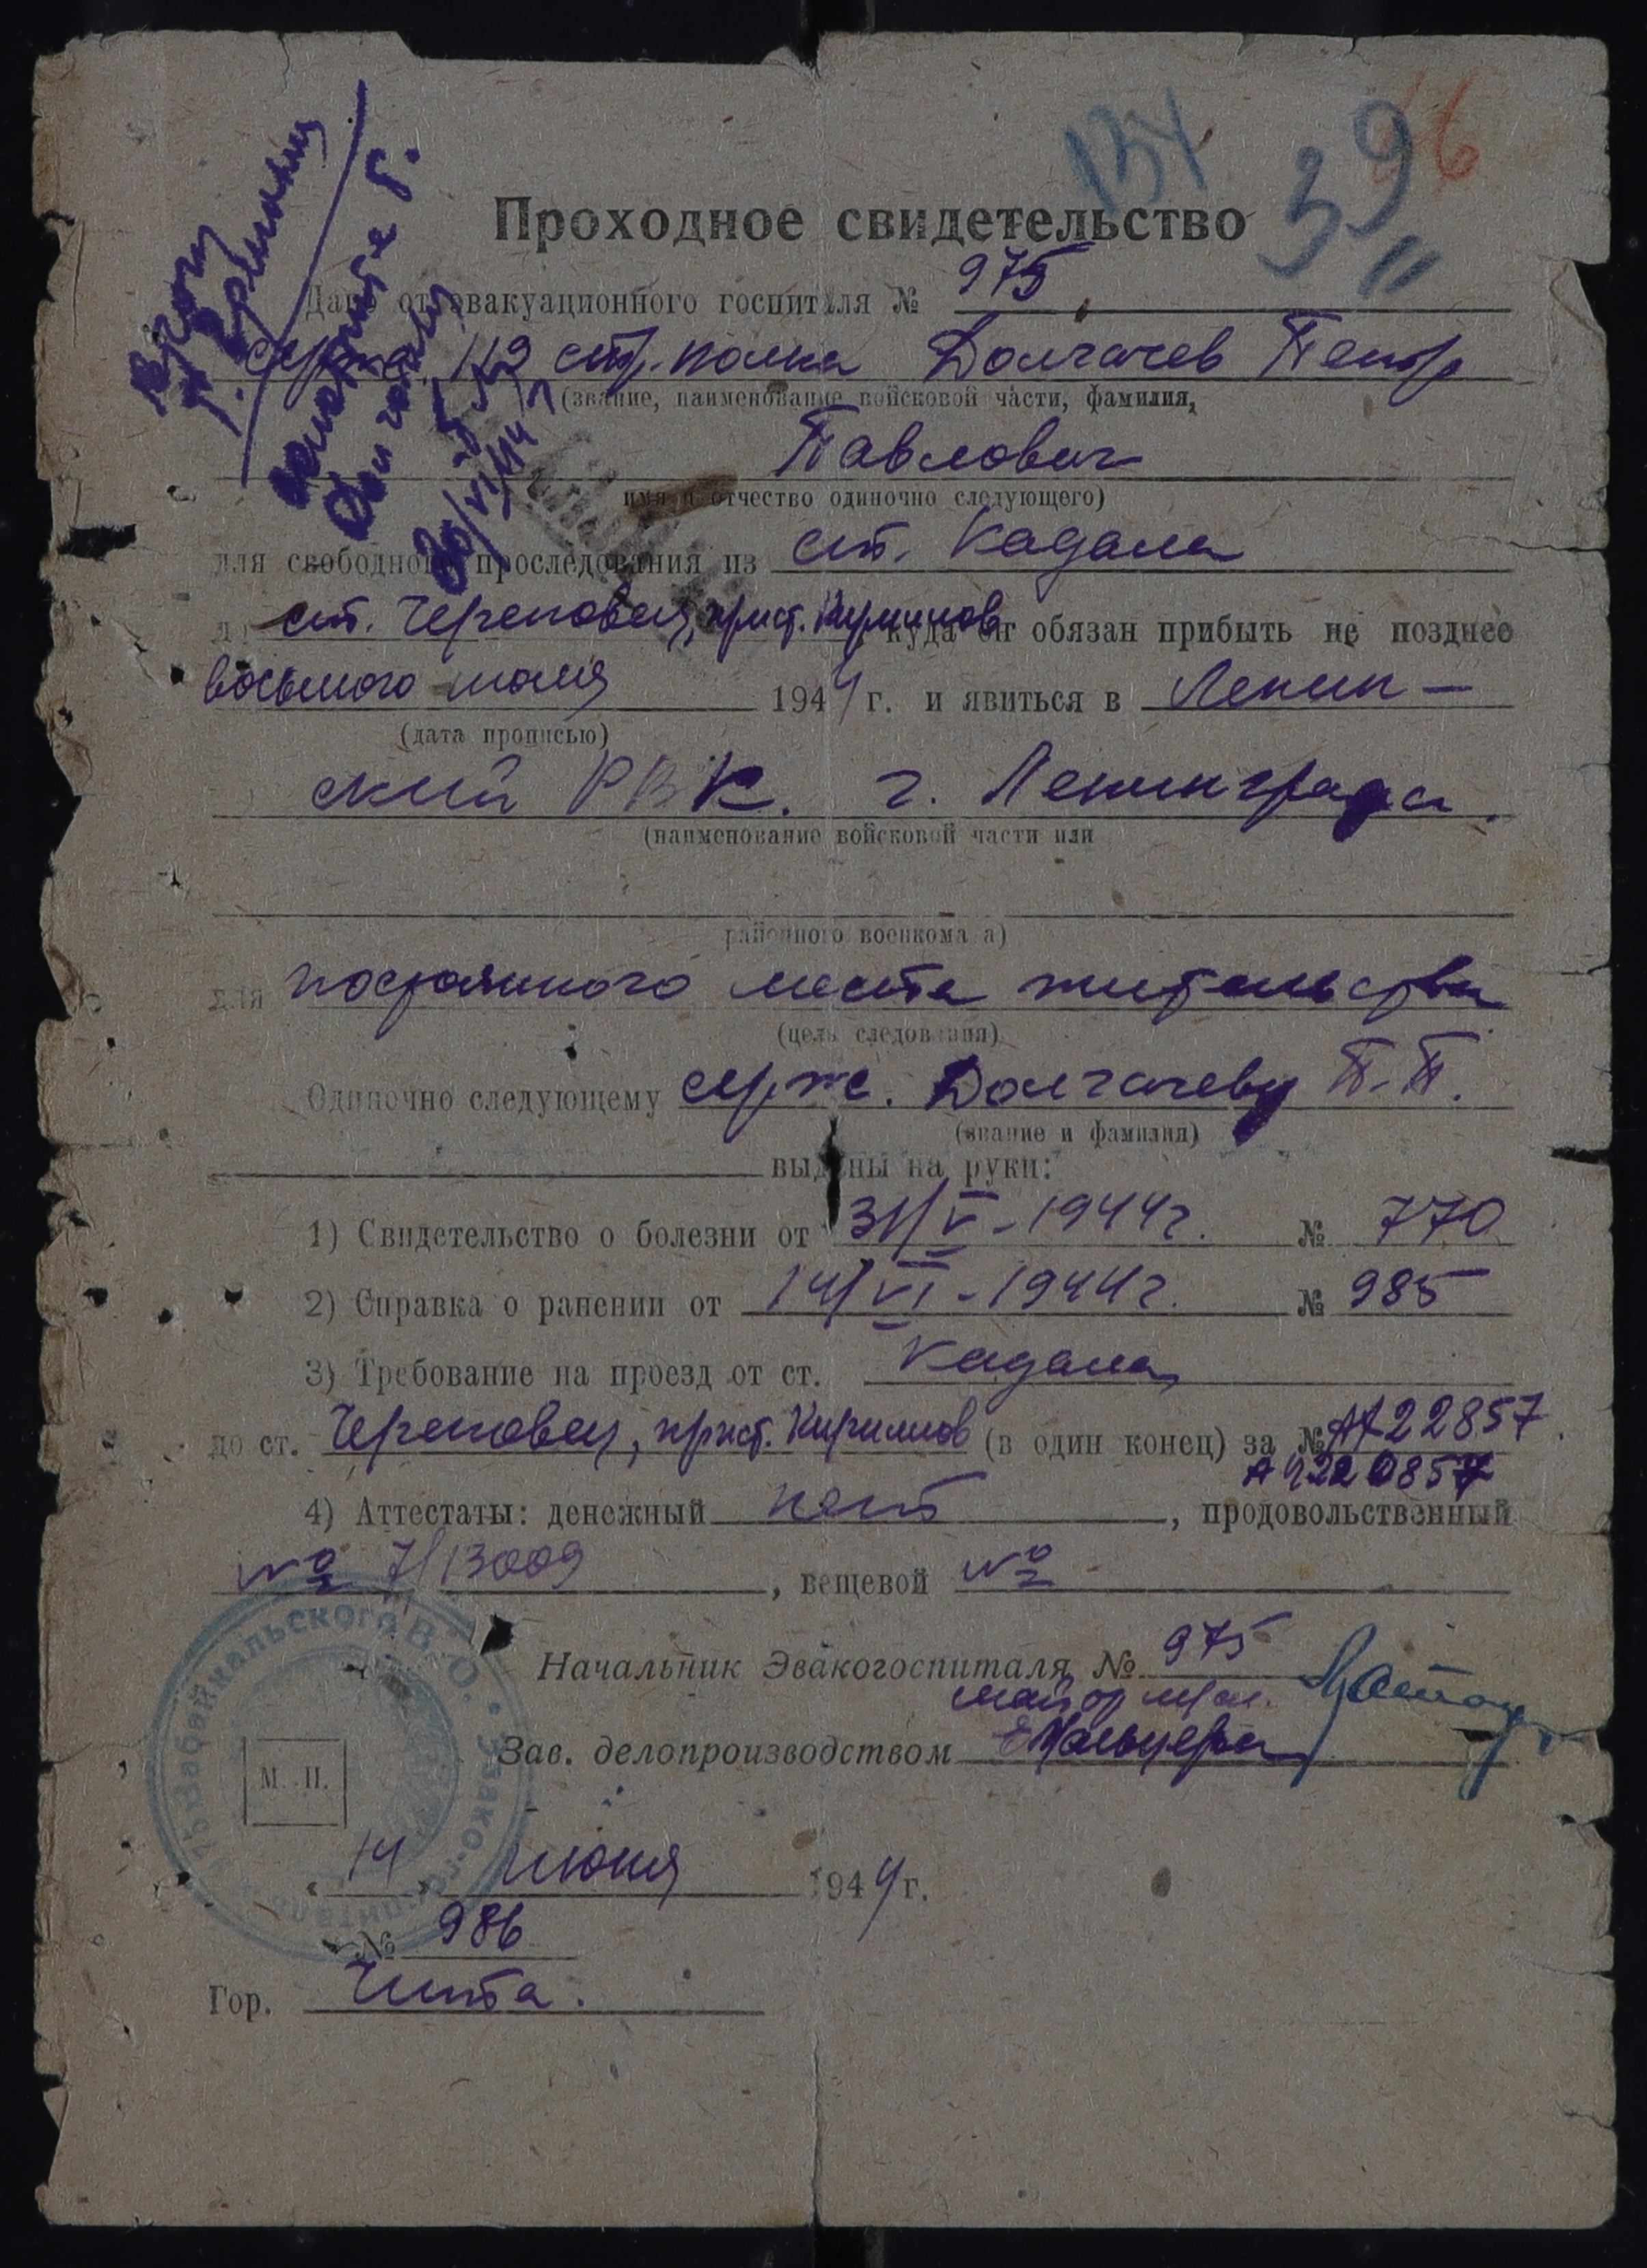 134
39
46
11
Проходное свидетельство
Дано от эвакуационного госпиталя № 975
серж. 119 стр. полка Долгачев Петр
(звание, наименование войсковой части, фамилия,
Павлович
имя и отчество одиночно следующего)
для свободного проследования из ст. Кадала
ст. Череповец, прист. Кириллов куда он обязан прибыть не позднее
восьмого июля 1944 г. и явиться в Ленин-
(дата прописью)
ский РВК. г. Ленинграда.
(наименование войсковой части или
районного военкома а)
для постоянного места жительства
(цель следования)
Одиночно следующему серж. Долгачеву П.П.
(звание и фамилия)
выданы на руки:
1) Свидетельство о болезни от 31/V-1944г. № 770
2) Справка о ранении от 14/VI-1944г. № 985
3) Требование на проезд от ст. Кадала
до ст. Череповец, прист. Кириллов (в один конец) за №
4) Аттестаты: денежный нет, продовольственный
№ 7/13009, вещевой №
Начальник Эвакогоспиталя № 975
майор
Зав. делопроизводством
Забайкальского В. О. • Эвако-госпиталь
М. П.
« 14 » июня 1944 г.
№ 986
Гор. Чита.